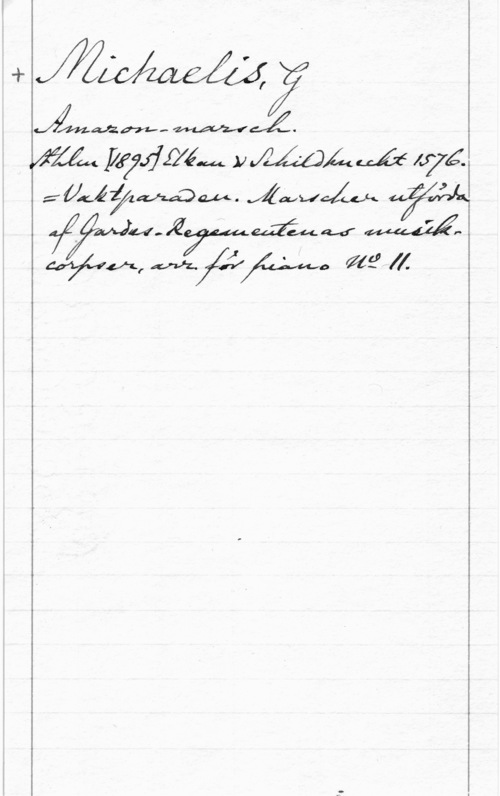 + Michaelis, G
Amazon-marsch.
Sthlm [1895] Elkan & Schildknecht 1576.
= Vaktparaden. Marscher utförda
af Gardes-Regementenas musik-
corpser, arr. för piano No 11.